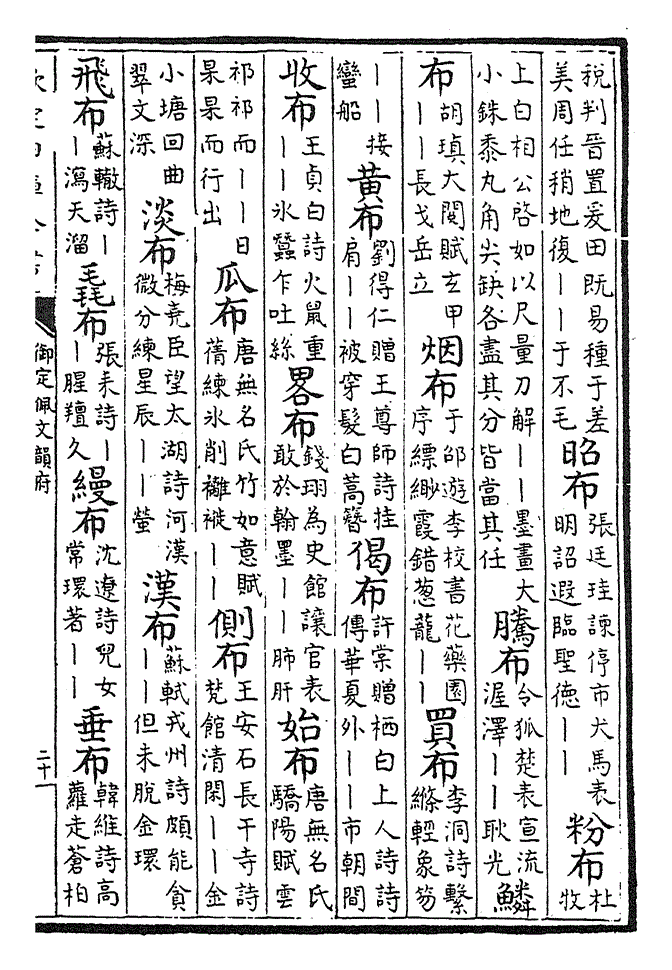 稅判晉置爰田既易種于差美周任稍地復丨丨于不毛 昭布 張廷珪諫停市犬馬表明詔遐臨聖德丨丨 粉布 杜牧
上白相公啓如以尺量刀解丨丨墨畫大小銖黍丸角尖缺各盡其分皆當其任 騰布 令狐楚表宣流渥澤丨丨耿光 鱗
布 胡瑱大閱賦玄甲丨丨長戈岳立 烟布 于邵遊李校書花藥園序縹緲霞錯葱蘢丨丨 買布 李洞詩繫絛輕象笏
丨丨接蠻船 黄布 劉得仁贈王尊師詩挂肩丨丨被穿髮白蒿簪 偈布 許棠贈栖白上人詩詩傳華夏外丨丨市朝間
收布 王貞白詩火鼠重丨丨氷蠶乍吐絲 畧布 錢珝為史館讓官表敢於翰墨丨丨肺肝 始布 唐無名氏驕陽賦雲
祁祁而丨丨日杲杲而行出 瓜布 唐無名氏竹如意賦蒨練氷削襳褷丨丨 側布 王安石長干寺詩梵館清閑丨丨金
小塘回曲翠文深 淡布 梅堯臣望太湖詩河漢微分練星辰丨丨螢 漢布 蘇軾戎州詩頗能貪丨丨但未脱金環
飛布 蘇轍詩丨丨瀉天溜 毳布 張耒詩丨丨腥羶久 縵布 沈遼詩兒女常環著丨丨 垂布 韓維詩高蘿走蒼柏
御定佩文韻府
二十